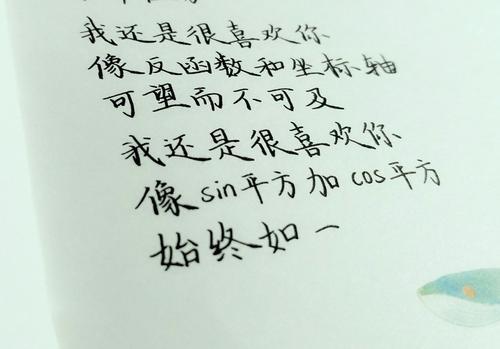 我还是很喜欢你
像反函数和坐标轴
可望而不可及
我还是很喜欢你
像sin平方加cos平方
始终如一